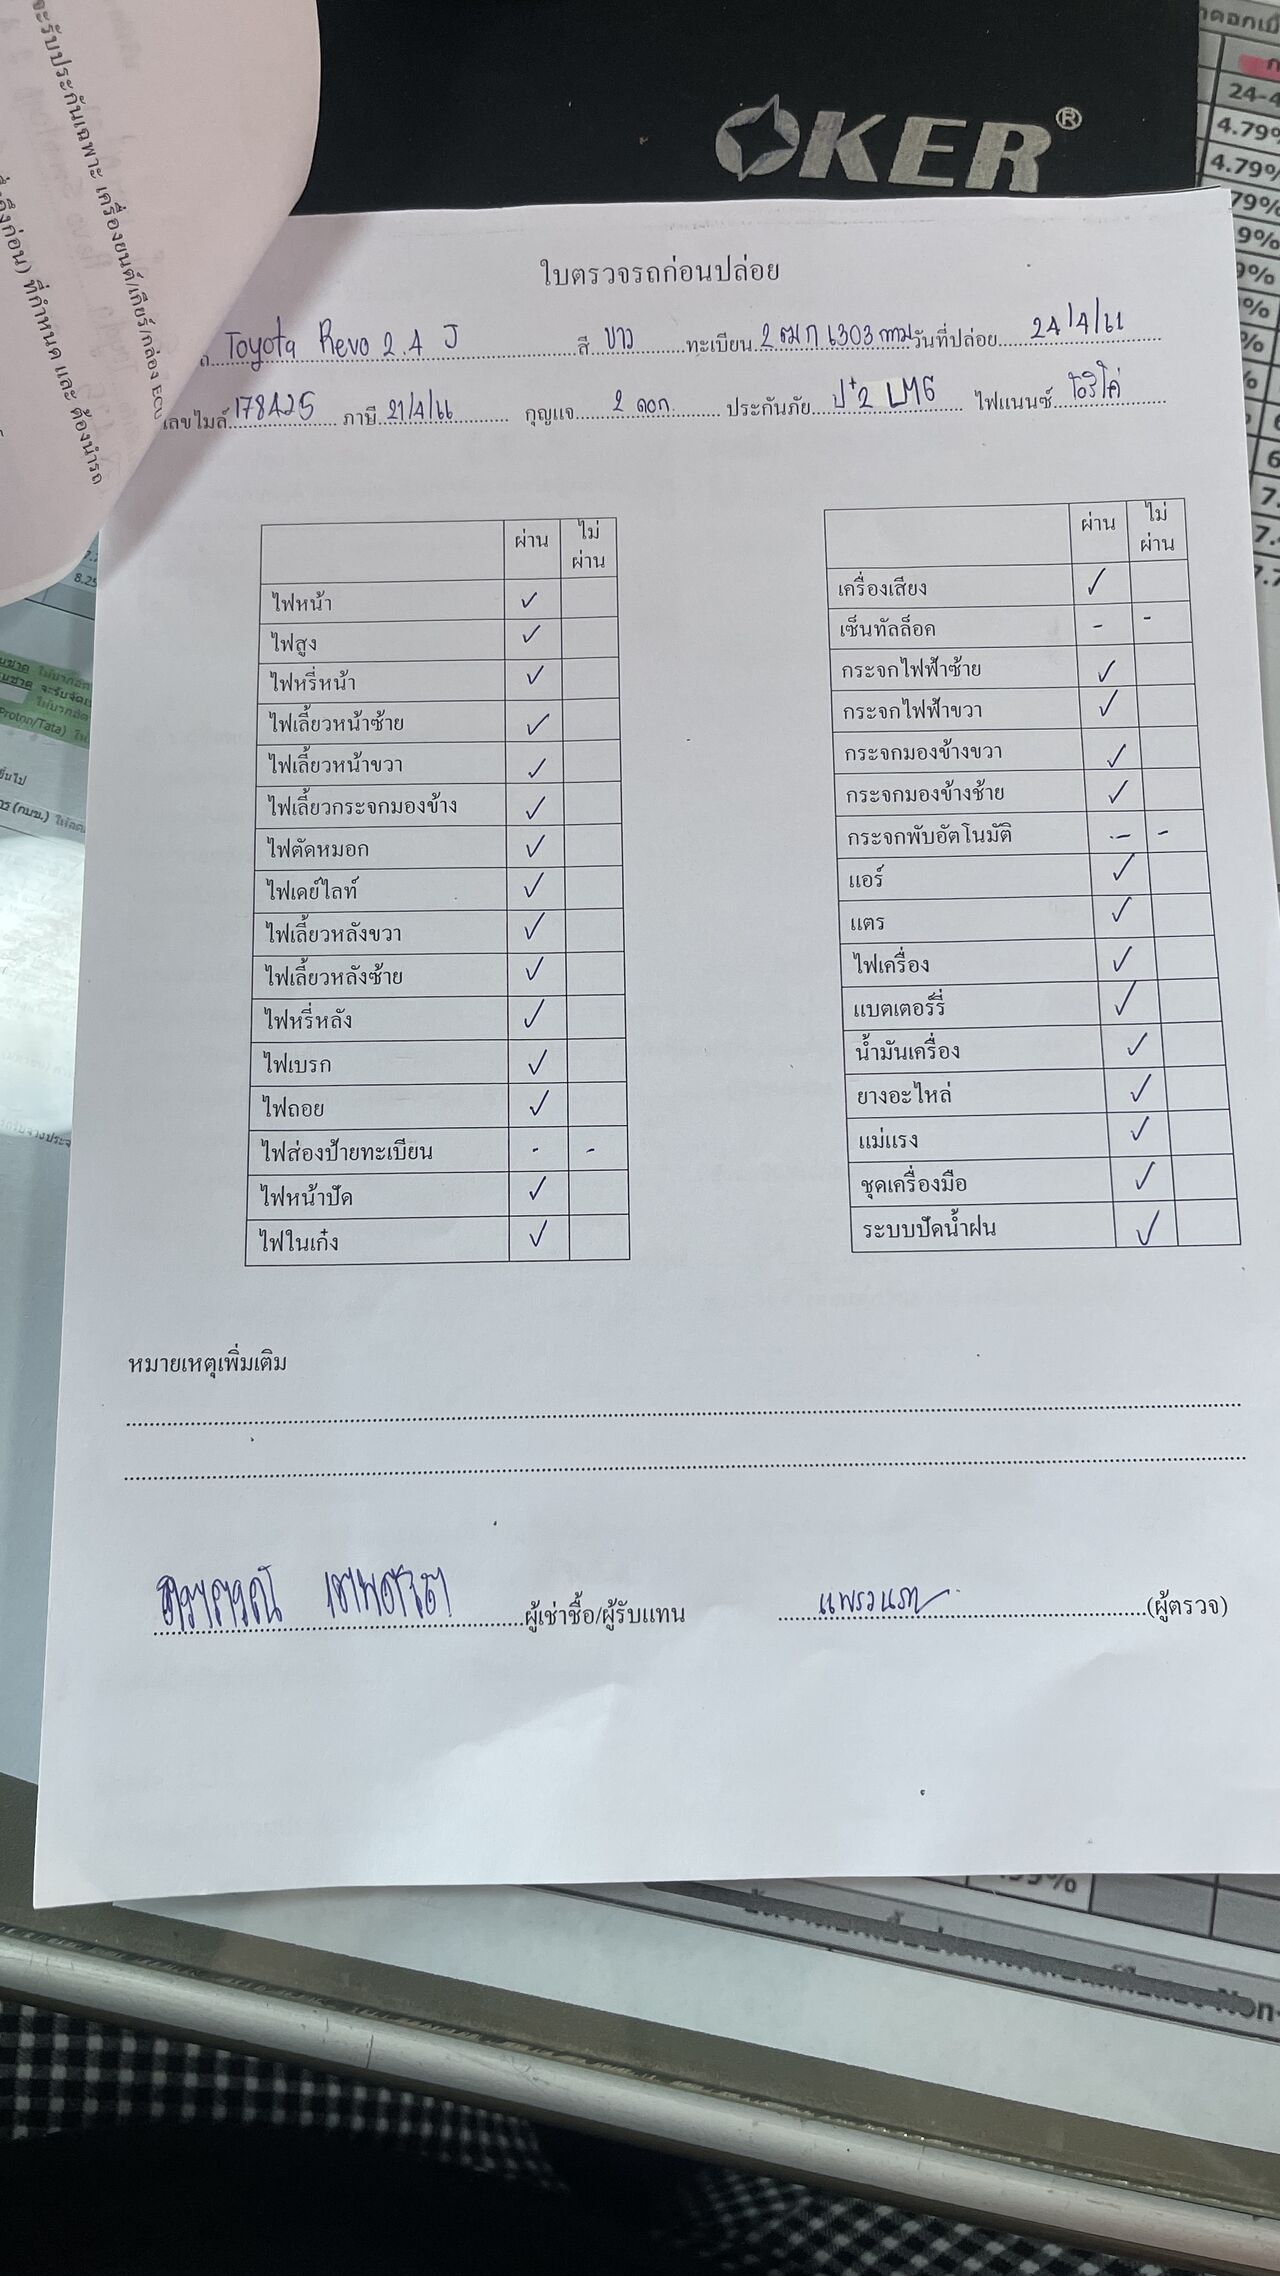 จะรับประกันเฉพาะ เครื่องยนต์/เกียร์/กล่อง ECU
ถึงก่อน) ที่กำหนด และ ต้องนำรถ
OKER®
24-4
4.79%
4.79%
79%
9%
ใบตรวจรถก่อนปล่อย
Toyota Revo 2.4 J สี ขาว ทะเบียน 2ฒก 6303 กทม วันที่ปล่อย 24/4/66
เลขไมล์ 178425 ภาษี 21/4/66 กุญแจ 2 ดอก ประกันภัย ป+2 LMG ไฟแนนซ์ โอริโค่
ผ่าน ไม่ผ่าน
ไฟหน้า ✓
ไฟสูง ✓
ไฟหรี่หน้า ✓
ไฟเลี้ยวหน้าซ้าย ✓
ไฟเลี้ยวหน้าขวา ✓
ไฟเลี้ยวกระจกมองข้าง ✓
ไฟตัดหมอก ✓
ไฟเดย์ไลท์ ✓
ไฟเลี้ยวหลังขวา ✓
ไฟเลี้ยวหลังซ้าย ✓
ไฟหรี่หลัง ✓
ไฟเบรก ✓
ไฟถอย ✓
ไฟส่องป้ายทะเบียน - -
ไฟหน้าปัด ✓
ไฟในเก๋ง ✓
ผ่าน ไม่ผ่าน
เครื่องเสียง ✓
เซ็นทัลล็อค - -
กระจกไฟฟ้าซ้าย ✓
กระจกไฟฟ้าขวา ✓
กระจกมองข้างขวา ✓
กระจกมองข้างซ้าย ✓
กระจกพับอัตโนมัติ - -
แอร์ ✓
แตร ✓
ไฟเครื่อง ✓
แบตเตอร์รี่ ✓
น้ำมันเครื่อง ✓
ยางอะไหล่ ✓
แม่แรง ✓
ชุดเครื่องมือ ✓
ระบบปัดน้ำฝน ✓
หมายเหตุเพิ่มเติม
ผู้เช่าซื้อ/ผู้รับแทน
(ผู้ตรวจ)